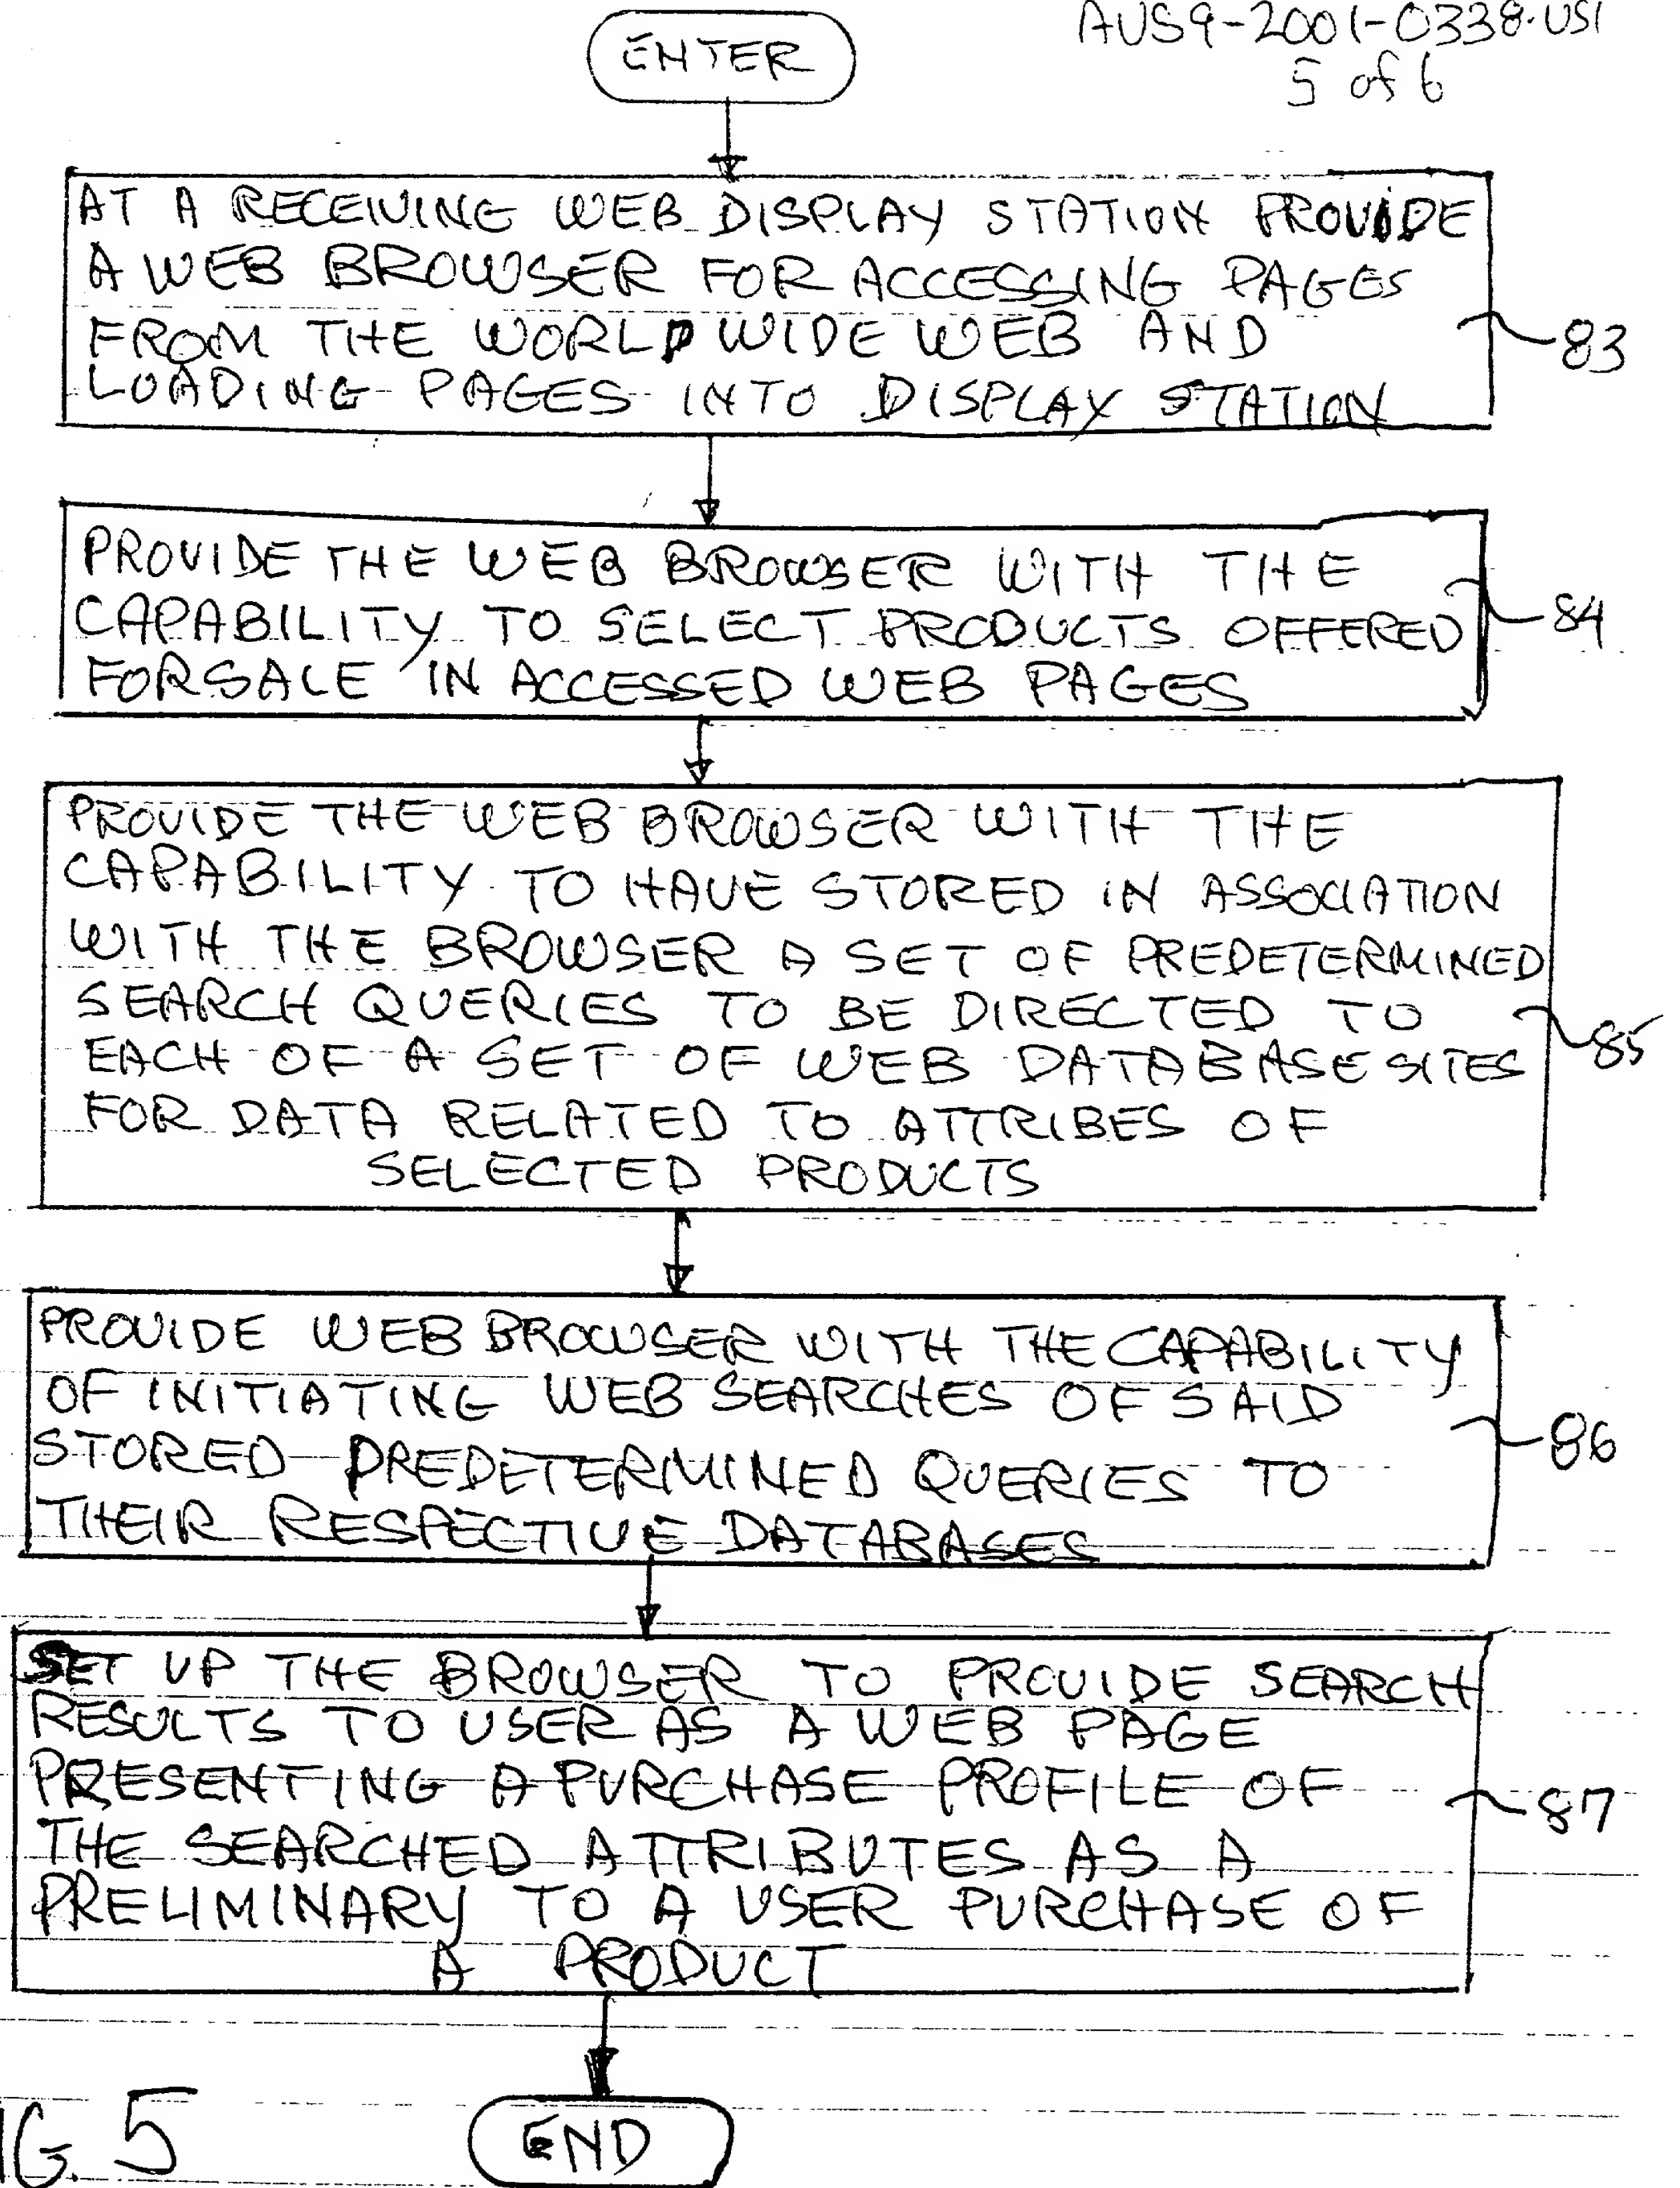 AUS9-2001-0338-US1
5 of 6
ENTER
AT A RECEIVING WEB DISPLAY STATION PROVIDE
A WEB BROWSER FOR ACCESSING PAGES
FROM THE WORLD WIDE WEB AND
LOADING PAGES INTO DISPLAY STATION
83
PROVIDE THE WEB BROWSER WITH THE
CAPABILITY TO SELECT PRODUCTS OFFERED
FOR SALE IN ACCESSED WEB PAGES
84
PROVIDE THE WEB BROWSER WITH THE
CAPABILITY TO HAVE STORED IN ASSOCIATION
WITH THE BROWSER A SET OF PREDETERMINED
SEARCH QUERIES TO BE DIRECTED TO
EACH OF A SET OF WEB DATABASE SITES
FOR DATA RELATED TO ATTRIBES OF
SELECTED PRODUCTS
85
PROVIDE WEB BROWSER WITH THE CAPABILITY
OF INITIATING WEB SEARCHES OF SAID
STORED PREDETERMINED QUERIES TO
THEIR RESPECTIVE DATABASES
86
SET UP THE BROWSER TO PROVIDE SEARCH
RESULTS TO USER AS A WEB PAGE
PRESENTING A PURCHASE PROFILE OF
THE SEARCHED ATTRIBUTES AS A
PRELIMINARY TO A USER PURCHASE OF
A PRODUCT
87
END
IG. 5